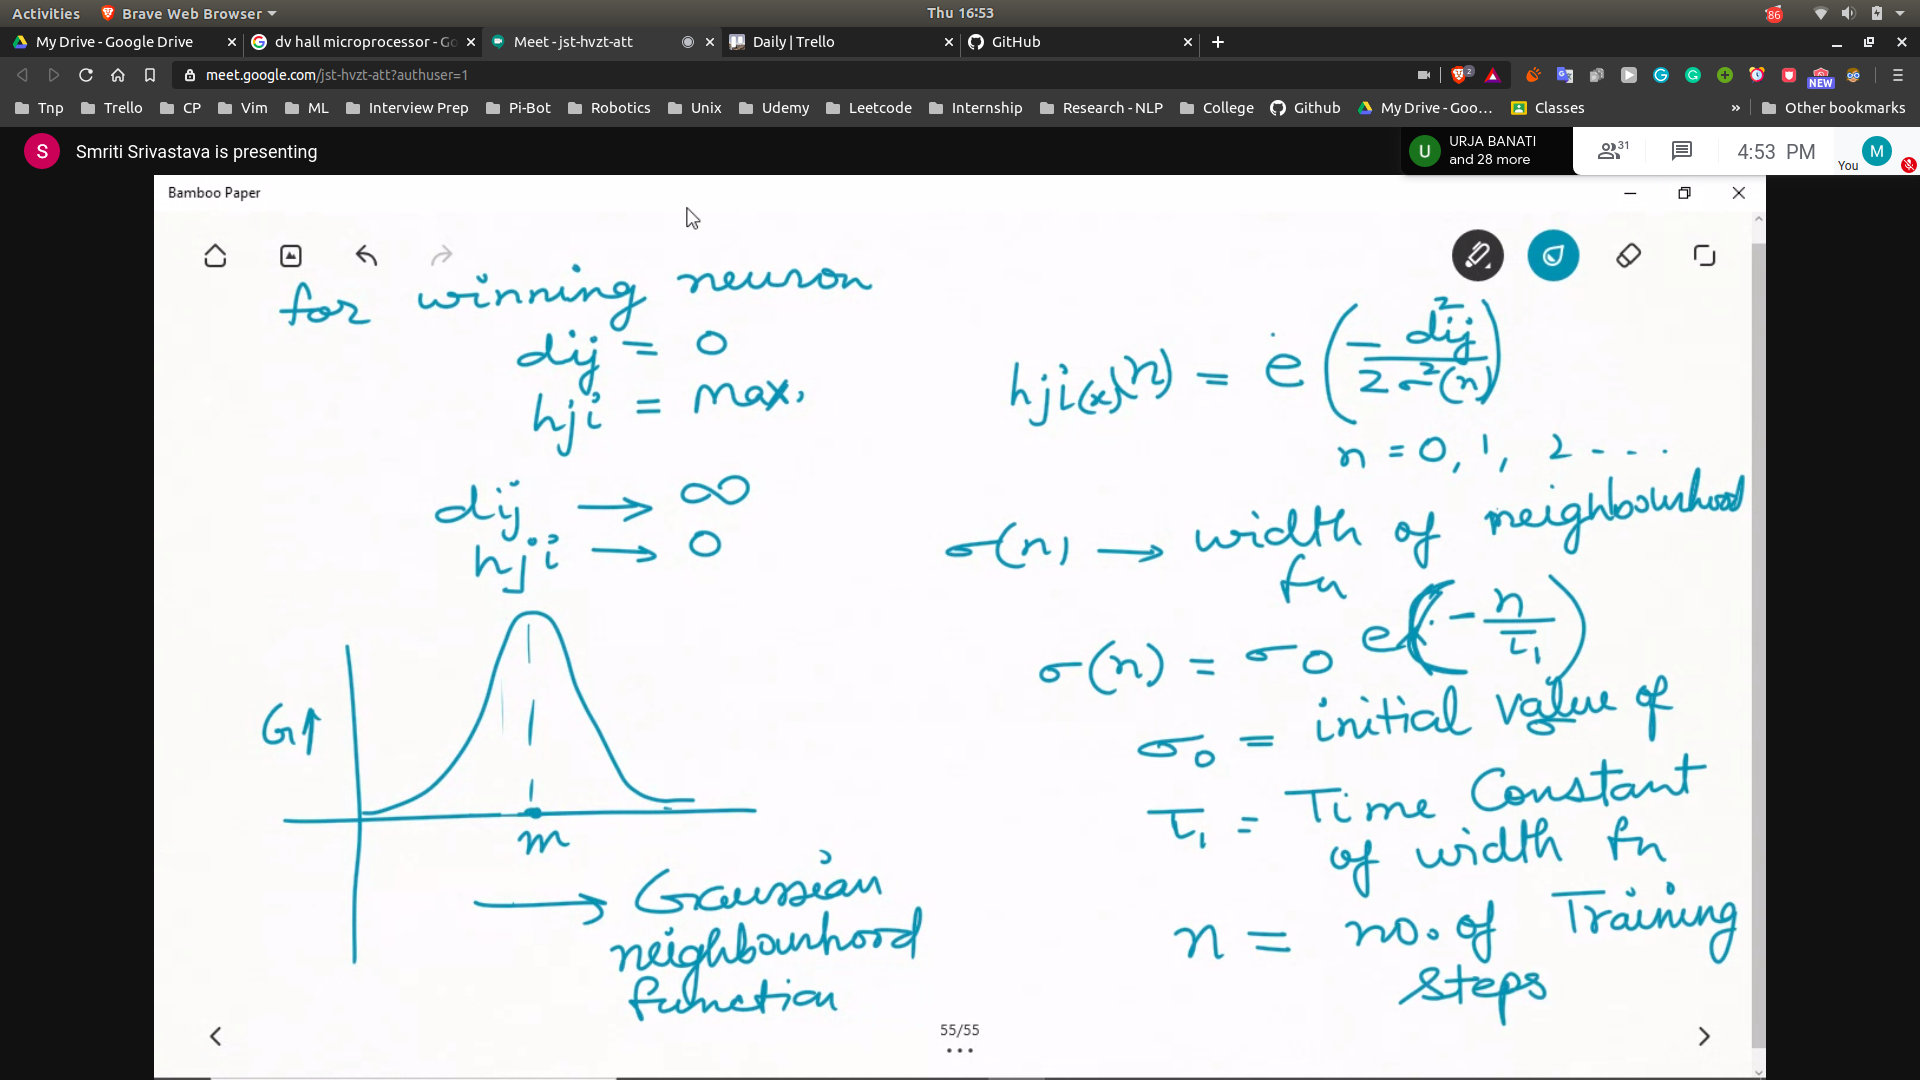 Activities Brave Web Browser Thu 16:53 86
My Drive - Google Drive dv hall microprocessor - Go Meet - jst-hvzt-att Daily | Trello GitHub
meet.google.com/jst-hvzt-att?authuser=1 2 NEW
Tnp Trello CP Vim ML Interview Prep Pi-Bot Robotics Unix Udemy Leetcode Internship Research - NLP College Github My Drive - Goo... Classes » Other bookmarks
S Smriti Srivastava is presenting
U URJA BANATI
and 28 more
31 4:53 PM You M
Bamboo Paper
for winning neuron
dij = 0
hji = max.
dij → ∞
hji → 0
G↑
m
→ Gaussian
neighbourhood
function
hji(x)(n) = e(-dij²/2σ²(n))
n = 0, 1, 2 - - - .
σ(n) → width of neighbourhood
fn
σ(n) = σ0 e(-n/τ1)
σ0 = initial value of
τ1 = Time Constant
of width fn
n = no. of Training
steps
55/55